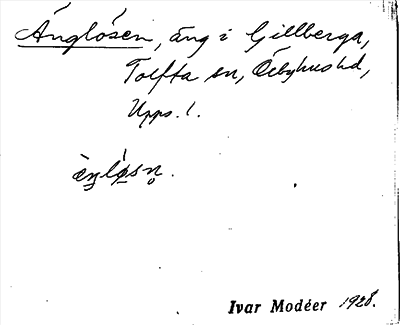 Änglösen, äng i Gillberga,
Tolfta sn, Örbyhus hd,
Upps. l.
Ivar Modéer 1928.